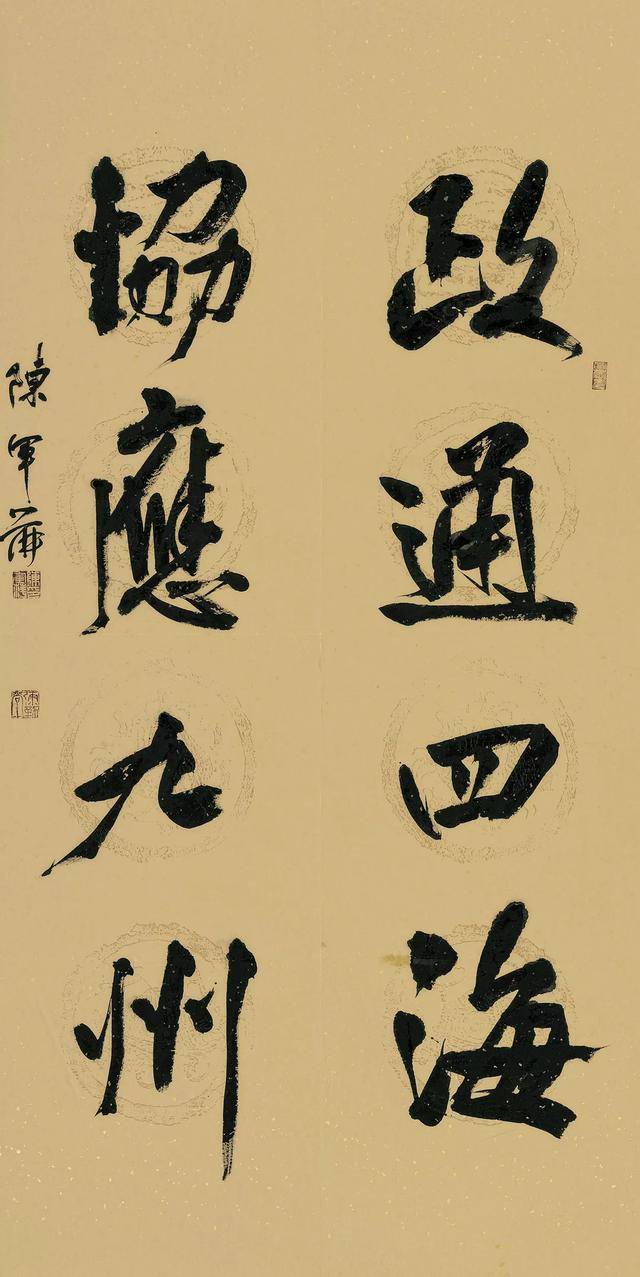 政通四海
協應九州
陳軍